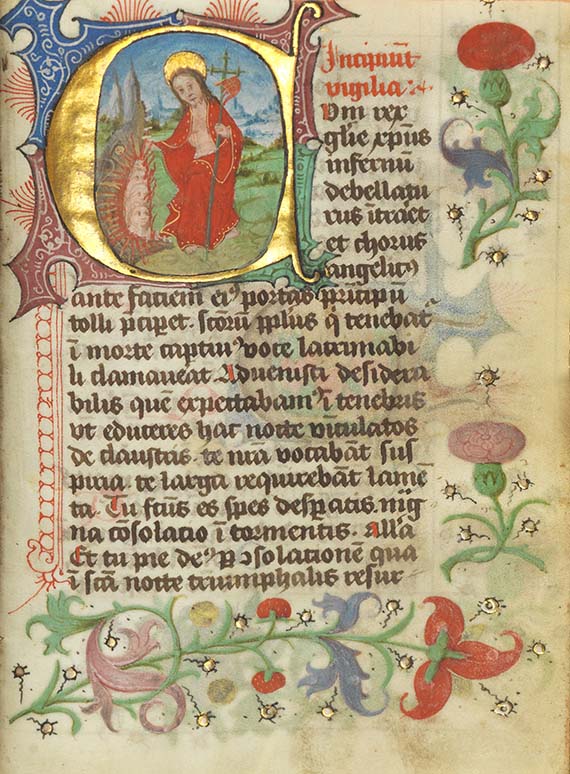 Incipiūt
vigilia:
Cum rex
glīe xp̄us
infernū
debellatu
rus ītraēt
et chorus
angelicꝰ
ante faciem eiꝰ portas prīcipū
tolli p̄ciperet. scōrū p̄plus q̄ tenebat᷑
ī morte captiuꝰ voce lacrimabi
li clamaueat Aduenisti desidera
bilis quē expectabamꝰ ī tenebris
vt educeres hac nocte vīculatos
de claustris. te nr̄a vocabāt sus
piria te larga requirebāt lamē
ta. Tu fctūs es spes desp̄atis. mīg
na cōsolacio ī tormentis. alla
Et tu pie deꝰ ꝓ ꝯsolationē qua
ī scā nocte triumphalis resur